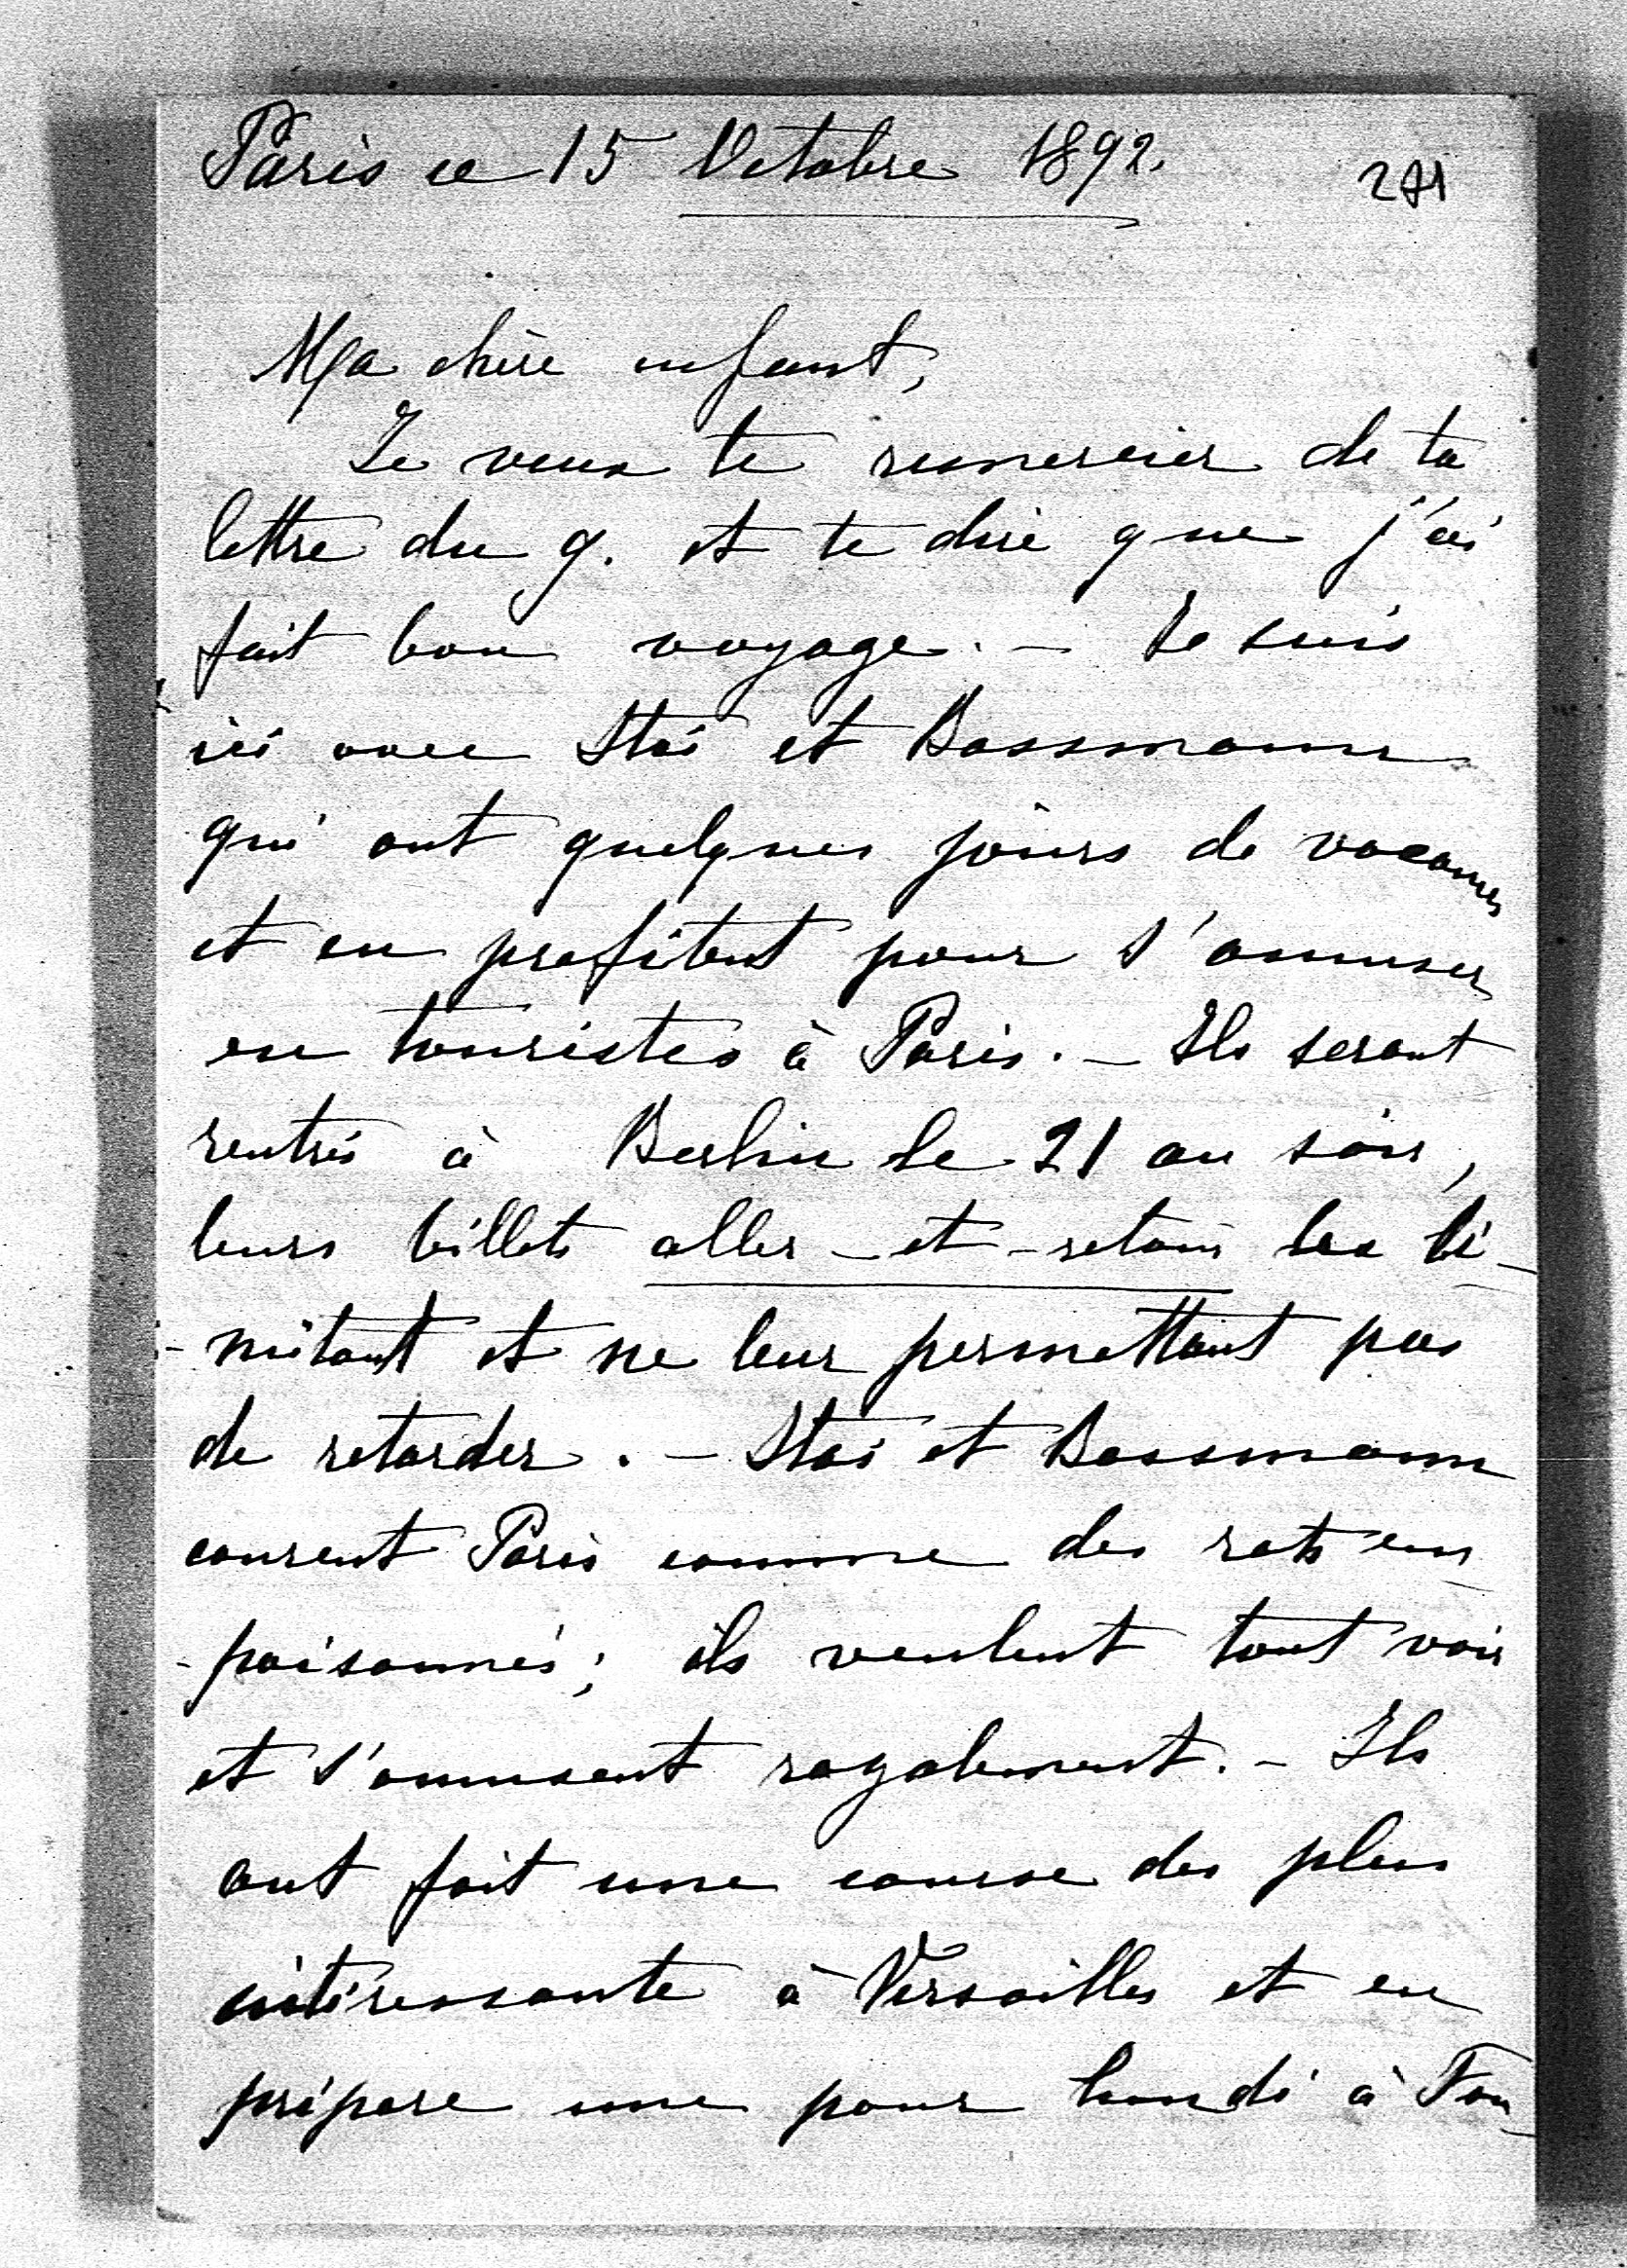 Paris ce 15 Octobre 1892.
Ma chère enfant,
Je veux te remercier de ta
lettre du 9. et te dire que j'ai
fait bon voyage. - Je suis
ici avec Stoi et Bassmann
qui ont quelques jours de vacances
et en profitent pour s'amuser
en touristes à Paris. - Ils seront
rentrés à Berlin le 21 au soir,
leurs billets aller-et-retour les li-
-mitant et ne leur permettant pas
de retarder. - Stoi et Bassmann
courent Paris comme des rats em-
-poisonnés; ils veulent tout voir
et s'amusent royalement. - Ils
ont fait une course des plus
intéressante à Versailles et en
prépare une pour lundi à Fon-